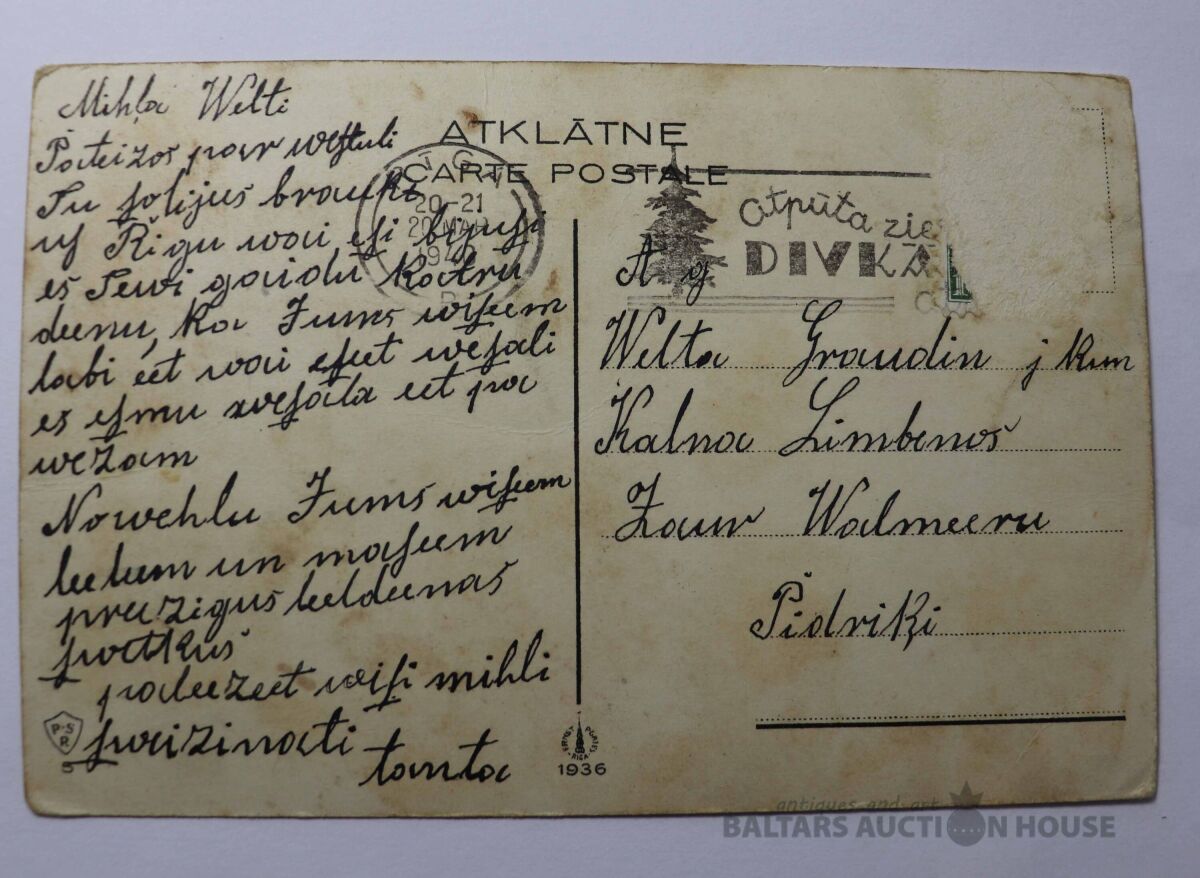 Mihļa Welti
Pateizos par westuli
Tu solijus braukt
us Rigu wai esi bijusi
es Tewi gaidu katru
deenu, ka Jums wiseem
labi eet wai eseet weseli
es esmu wesala eet pa
wezam
Nowehlu Jums wiseem
leeleem un maseem
preezigus leeldeenas
swetkus
paleezeet wisi mihli
sweizinati
tanta
ATKLĀTNE
CARTE POSTALE
RĪGA
20-21
20 MAR
Atpūta zie
DIVKĀ
A g
Welta Graudin j kun
Kalna Limbenos
Zaur Walmeeru
Pidriķi
PSR
5
ERNST PLATES
RIGA
1936
antiques and art
BALTARS AUCTION HOUSE